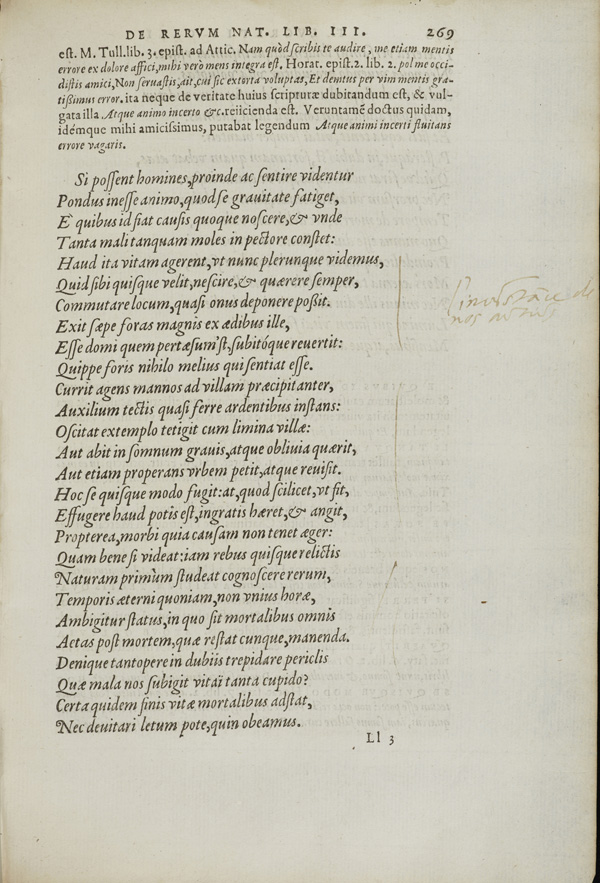 DE RERVM NAT. LIB. III. 269
est. M. Tull. lib. 3. epist. ad Attic. Nam quòd scribis te audire, me etiam mentis
errore ex dolore affici, mihi verò mens integra est. Horat. epist. 2. lib. 2. pol me occi-
distis amici, Non seruastis, ait, cui sic extorta voluptas, Et demtus per vim mentis gra-
tißimus error. ita neque de veritate huius scripturæ dubitandum est, & vul-
gata illa Atque animo incerto &c. reiicienda est. Veruntamē doctus quidam,
idémque mihi amicissimus, putabat legendum Atque animi incerti fluitans
errore vagaris.
Si possent homines, proinde ac sentire videntur
Pondus inesse animo, quod se grauitate fatiget,
E' quibus id fiat causis quoque noscere, & vnde
Tanta mali tanquam moles in pectore constet:
Haud ita vitam agerent, vt nunc plerunque videmus,
Quid sibi quisque velit, nescire, & quærere semper,
Commutare locum, quasi onus deponere poßit.
Exit sæpe foras magnis ex ædibus ille,
Esse domi quem pertæsum'st, subitóque reuertit:
Quippe foris nihilo melius qui sentiat esse.
Currit agens mannos ad villam præcipitanter,
Auxilium tectis quasi ferre ardentibus instans:
Oscitat extemplo tetigit cum limina villæ:
Aut abit in somnum grauis, atque obliuia quærit,
Aut etiam properans vrbem petit, atque reuisit.
Hoc se quisque modo fugit: at, quod scilicet, vt fit,
Effugere haud potis est, ingratis hæret, & angit,
Propterea, morbi quia causam non tenet æger:
Quam bene si videat: iam rebus quisque relictis
Naturam primùm studeat cognoscere rerum,
Temporis æterni quoniam, non vnius horæ,
Ambigitur status, in quo sit mortalibus omnis
Aetas post mortem, quæ restat cunque, manenda.
Denique tantopere in dubiis trepidare periclis
Quæ mala nos subigit vitaï tanta cupido?
Certa quidem finis vitæ mortalibus adstat,
Nec deuitari letum pote, quin obeamus.
Ll 3
l'inconstāce de
nos actions